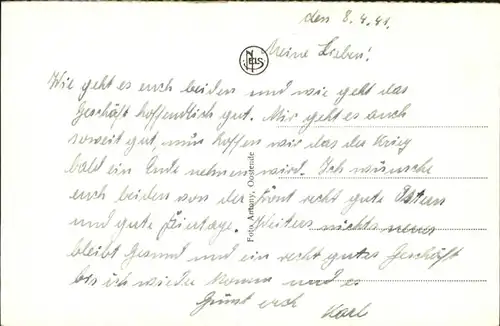 den 8.4.41.
Meine Lieben!
Wie geht es euch beiden und wie geht das
Geschäft hoffendlich gut. Mir geht es auch
soweit gut, nun hoffen wir das der Krieg
bald ein Ende nehmen wird. Ich wünsche
euch beiden von der Front recht gute Ostern
und gute Feiertage. Weiters nichts neues
bleibt Gesund und ein recht gutes Geschäft
bis ich wieder komme und es
Grüst euch Karl
NELS
Foto Antony, Oostende